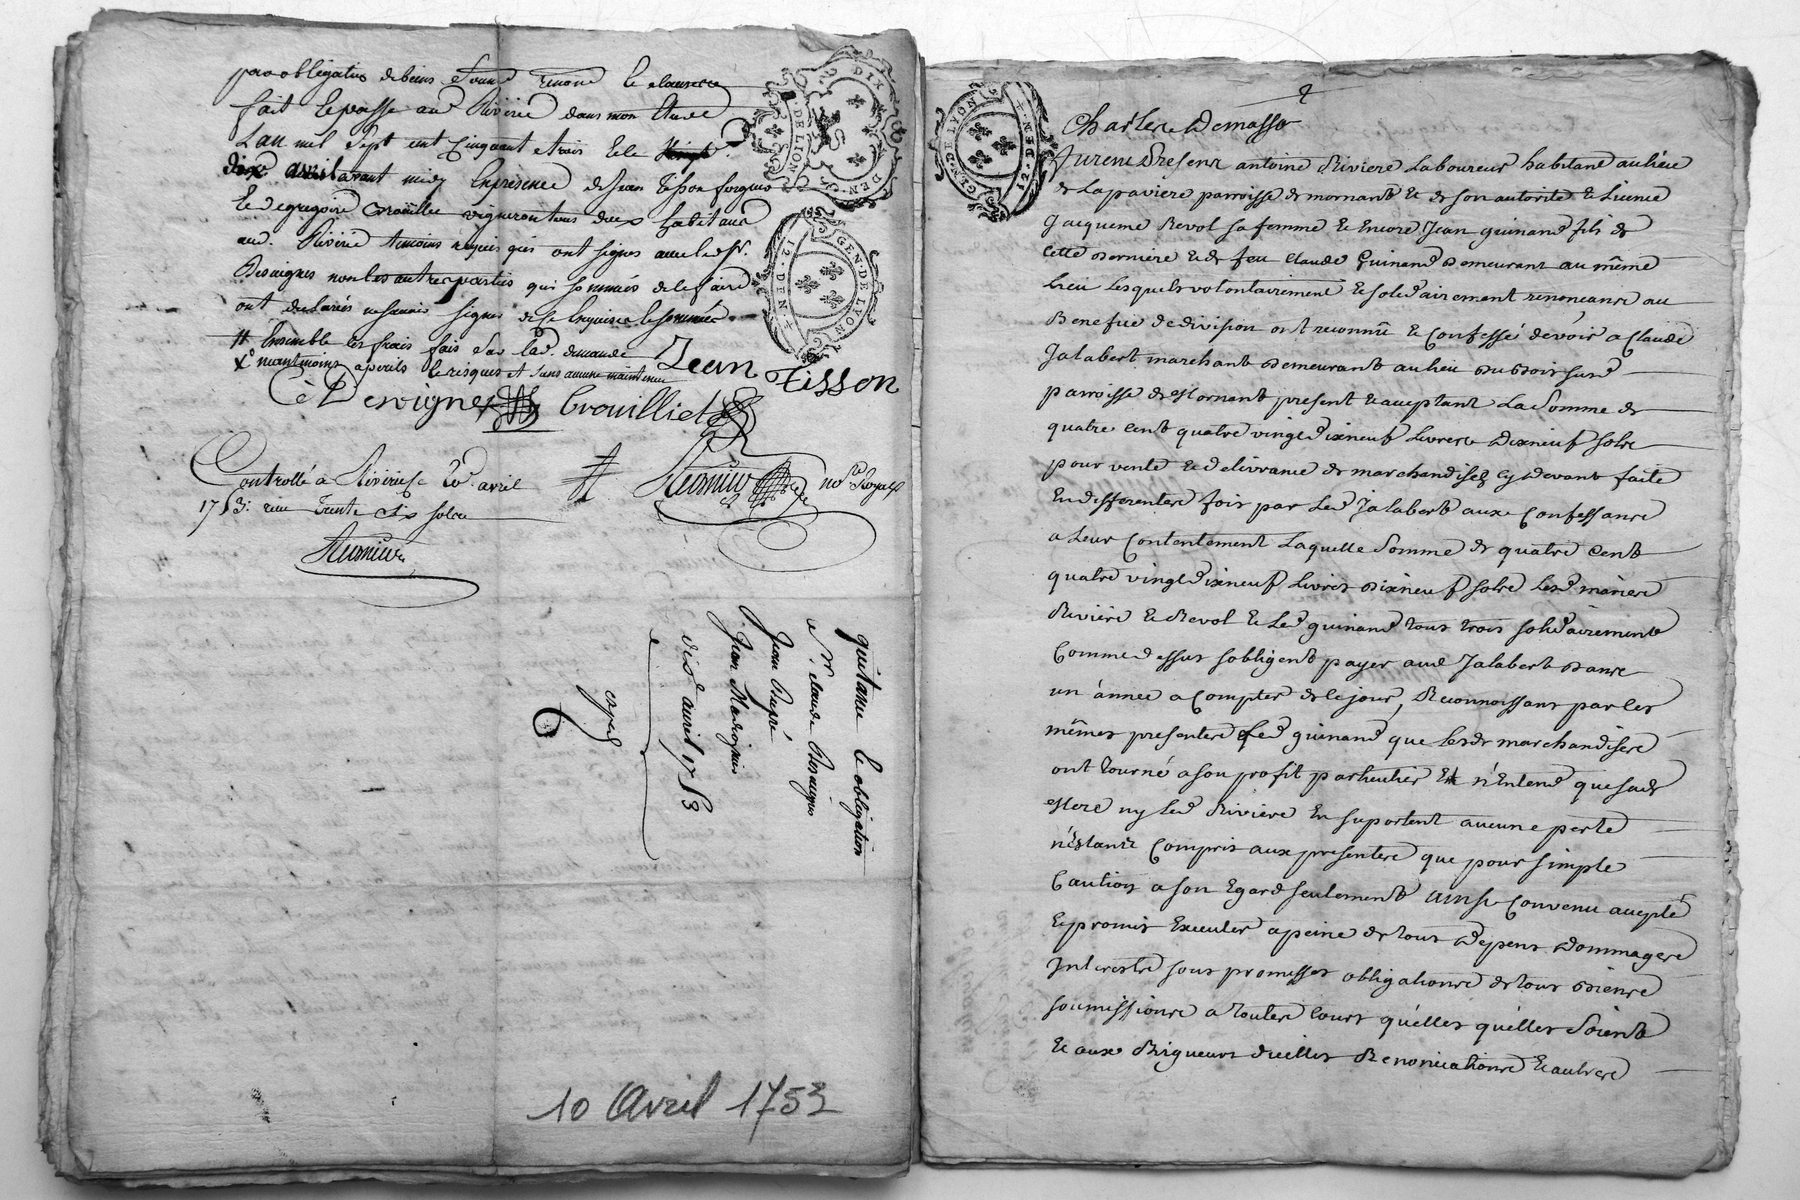 par obligation de biens
fait et passé aud Riverie dans mon Etude
L'an mil sept cent Cinquant et trois et le
dix avril avant midy En presence de Jean Tisson
et de gregoire Brouillet vigneron tous deux habitans
aud. Riverie temoins requis qui ont signés avec led sr.
Desvignes non les autres parties qui sommées de le faire
ont declarés ne savoir signer de ce Enquises et sommées
Ensemble les frais fais sur lad. demande
neantmoins a perils et risques et sans aucune maintenue
Jean Tisson
Desvignes Brouillet
Controllé a Riverie le 20e avril
1753: reçu Trente six sols
nore Royal
GEN. DE LYON
DIX DEN.
GEN. DE LYON
12. DEN.
quitance et obligation
Jean
Jean
dix avril 1753
10 Avril 1753
GEN. DE LYON
12. DEN.
2
Furent Presens antoine Riviere Laboureur habitant au lieu
de La paviere parroisse de mornant et de son autorité et Licence
Jacqueme Revol sa femme et Encore Jean guinand fils de
cette derniere et de feu Claude Guinand demeurant au même
lieu Lesquels volontairement et solidairement renoncant au
Benefice de division ont reconnû et Confessé devoir a Claude
Jalabert marchand demeurant au lieu du
parroisse de Mornant present et aceptant La Somme de
quatre cent quatre vingt dixneuf Livres dixneuf sols
pour vente et delivrance de marchandises Cy devant faite
En differentes fois par Led Jalabert aux Confessans
a Leur Contentement Laquelle Somme de quatre cent
quatre vingt dixneuf Livres dixneuf sols Lesd mariés
Riviere et Revol et Led guinand tous trois solidairement
Comme dessus sobligent payer aud Jalabert dans
un année a Compter de ce jour, Reconnoissant par les
mêmes presentes Led guinand que lesds marchandises
ont tourné a son profit particulier Et n'Entend que sade
Mere ny Led Riviere En suportent aucune perte
n'Estants Compris aux presentes que pour simple
Caution a son Egard seulement ainsi Convenu accepté
Et promis Executer a peine de tous Depens Dommages
Interests sous promesses obligations de tous Biens
soumissions a toutes Cours qu'elles qu'elles Soient
Et aux Rigueurs d'icelles Renonciations Et autres